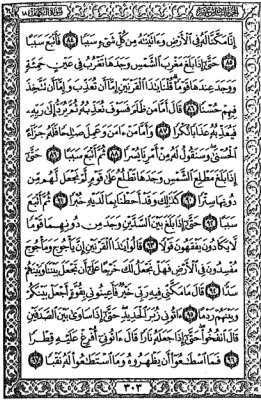 سُورَةُ الْكَهْفِ ١٨
إِنَّا مَكَّنَّا لَهُۥ فِى ٱلْأَرْضِ وَءَاتَيْنَٰهُ مِن كُلِّ شَىْءٍ سَبَبًا ٨٤ فَأَتْبَعَ سَبَبًا
٨٥ حَتَّىٰٓ إِذَا بَلَغَ مَغْرِبَ ٱلشَّمْسِ وَجَدَهَا تَغْرُبُ فِى عَيْنٍ حَمِئَةٍ
وَوَجَدَ عِندَهَا قَوْمًا قُلْنَا يَٰذَا ٱلْقَرْنَيْنِ إِمَّآ أَن تُعَذِّبَ وَإِمَّآ أَن تَتَّخِذَ
فِيهِمْ حُسْنًا ٨٦ قَالَ أَمَّا مَن ظَلَمَ فَسَوْفَ نُعَذِّبُهُۥ ثُمَّ يُرَدُّ إِلَىٰ رَبِّهِۦ
فَيُعَذِّبُهُۥ عَذَابًا نُّكْرًا ٨٧ وَأَمَّا مَنْ ءَامَنَ وَعَمِلَ صَٰلِحًا فَلَهُۥ جَزَآءً
ٱلْحُسْنَىٰ وَسَنَقُولُ لَهُۥ مِنْ أَمْرِنَا يُسْرًا ٨٨ ثُمَّ أَتْبَعَ سَبَبًا ٨٩ حَتَّىٰٓ
إِذَا بَلَغَ مَطْلِعَ ٱلشَّمْسِ وَجَدَهَا تَطْلُعُ عَلَىٰ قَوْمٍ لَّمْ نَجْعَل لَّهُم مِّن
دُونِهَا سِتْرًا ٩٠ كَذَٰلِكَ وَقَدْ أَحَطْنَا بِمَا لَدَيْهِ خُبْرًا ٩١ ثُمَّ أَتْبَعَ
سَبَبًا ٩٢ حَتَّىٰٓ إِذَا بَلَغَ بَيْنَ ٱلسَّدَّيْنِ وَجَدَ مِن دُونِهِمَا قَوْمًا
لَّا يَكَادُونَ يَفْقَهُونَ قَوْلًا ٩٣ قَالُوا۟ يَٰذَا ٱلْقَرْنَيْنِ إِنَّ يَأْجُوجَ وَمَأْجُوجَ
مُفْسِدُونَ فِى ٱلْأَرْضِ فَهَلْ نَجْعَلُ لَكَ خَرْجًا عَلَىٰٓ أَن تَجْعَلَ بَيْنَنَا وَبَيْنَهُمْ
سَدًّا ٩٤ قَالَ مَا مَكَّنِّى فِيهِ رَبِّى خَيْرٌ فَأَعِينُونِى بِقُوَّةٍ أَجْعَلْ بَيْنَكُمْ
وَبَيْنَهُمْ رَدْمًا ٩٥ ءَاتُونِى زُبَرَ ٱلْحَدِيدِ حَتَّىٰٓ إِذَا سَاوَىٰ بَيْنَ ٱلصَّدَفَيْنِ
قَالَ ٱنفُخُوا۟ حَتَّىٰٓ إِذَا جَعَلَهُۥ نَارًا قَالَ ءَاتُونِىٓ أُفْرِغْ عَلَيْهِ قِطْرًا
٩٦ فَمَا ٱسْطَٰعُوٓا۟ أَن يَظْهَرُوهُ وَمَا ٱسْتَطَٰعُوا۟ لَهُۥ نَقْبًا ٩٧
٣٠٣